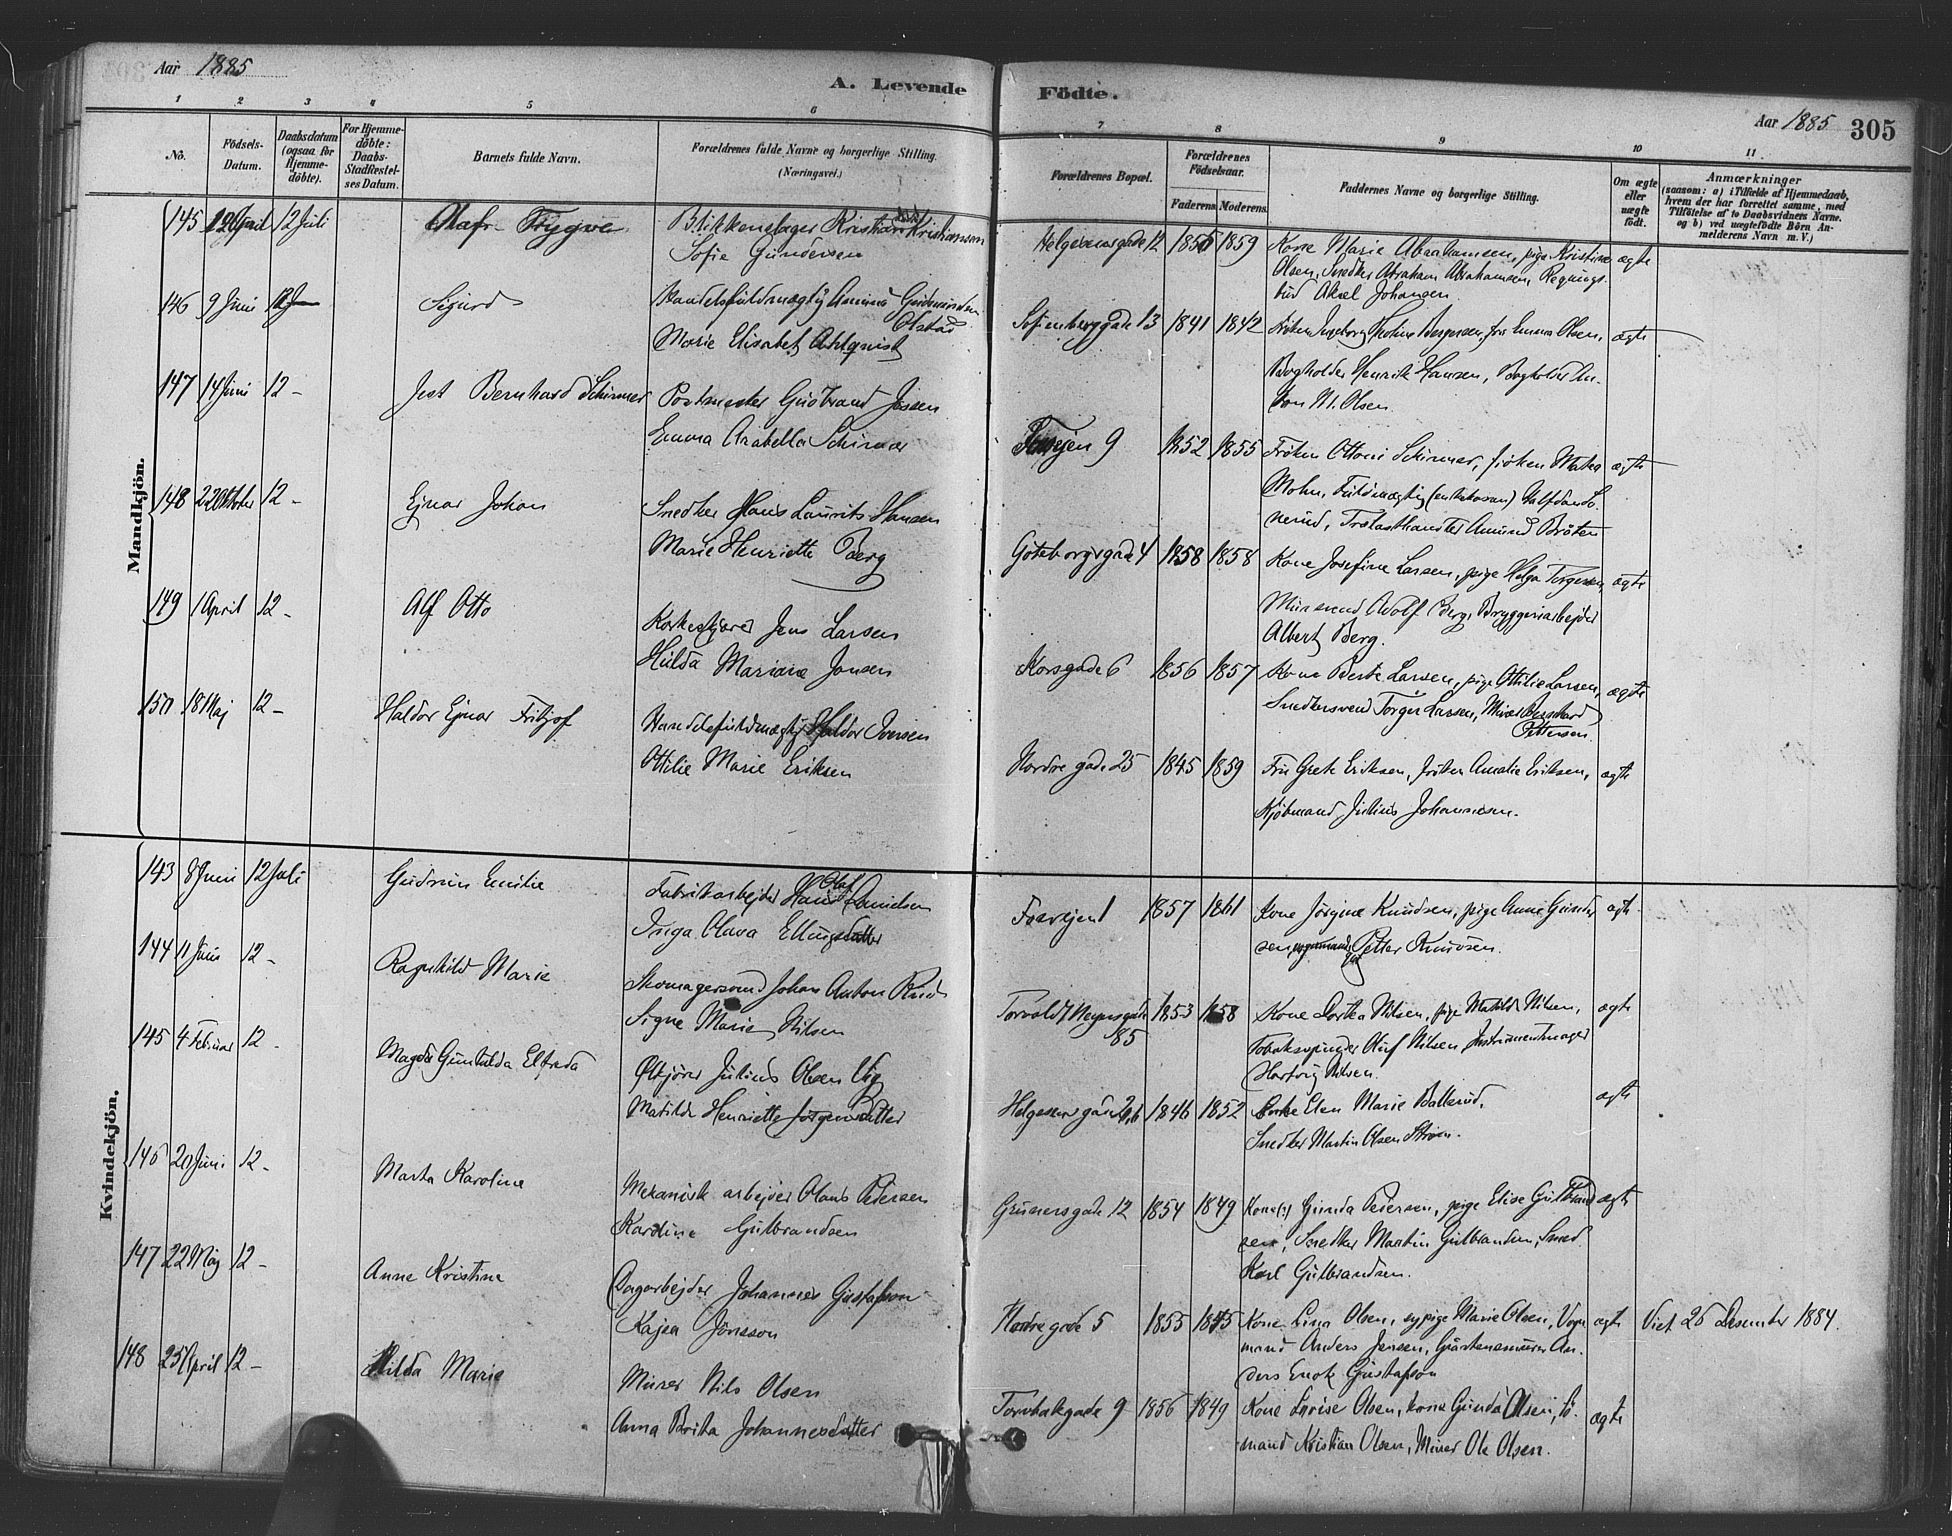 Aar 1885
A. Levende
Födte.
Aar 1885 305
1 2 3 4 5 6 7 8 9 10 11
No.
Födsels-
Datum.
Daabsdatum
(ogsaa for
Hjemme-
döbte).
For Hjemme-
döbte:
Daabs-
Stadfæstel-
ses Datum.
Barnets fulde Navn.
Forældrenes fulde Navne og borgerlige Stilling.
(Næringsvei.)
Forældrenes Bopæl.
Forældrenes
Födselsaar.
Faderens Moderens
Faddernes Navne og borgerlige Stilling.
Om ægte
eller
uægte
födt.
Anmærkninger
(saasom: a) i Tilfælde af Hjemmedaab,
hvem der har forrettet samme, med
Tilföielse af to Daabsvidners Navne.
og b) ved uægtefödte Börn An-
melderens Navn m. V.)
Mandkjön.
145 12 April 12 Juli Olaf Trygve Blikkenslager Kristian Kristiansen
Sofie Gundersen
Helgesensgade 12 1855 1859 Kone Marie Abrahamsen, pige Kristine ægte
Olsen, Snedker Abraham Abrahamsen, Regnings-
bud Aksel Johansen
146 9 Juni Sigurd Handelsfuldmægtig
Olstad
Marie Elisabet Ahlqvist
Sofienberggade 13 1841 1842 Frøken Ingeborg Bergersen, fru Emma Olsen, ægte
Bogholder Henrik Hansen, Bogholder An-
ton M. Olsen
147 14 Juni 12 - Just Bernhard Schirmer Postmester Gudbrand Jessen
Emma Arabella Schirmer
9 1852 1855 Frøken Ottoni Schirmer, frøken
Mohn, Fuldmægtig Halfdan L.
nerud, Trælasthandler Amund Bråten
ægte
148 22 Oktober 12 - Ejnar Johan Snedker Hans Laurits Hansen
Marie Henriette Berg
Göteborggade 4 1858 1858 Kone Josefine Larsen, pige Helga Torgersen, ægte
Mursvend Adolf Berg, Bryggeriarbejder
Albert Berg.
149 1 April 12 - Alf Otto Korkeskjærer Jens Larsen
Hulda Mariane Jansen
Korsgade 6 1856 1857 Kone Berte Larsen, pige Ottilie Larsen, ægte
Snedkersvend Torger Larsen, Murer
Pettersen.
150 18 Maj 12 - Haldor Ejnar Fritjof Handelsfuldmægtig Haldor Iversen
Ottilie Marie Eriksen
Nordre gade 25 1845 1859 Fru Grete Eriksen, frøken Amalie Eriksen, ægte
Kjøbmand Julius Johannesen.
Kvindekjön.
143 8 Juni 12 Juli Gudrun Emilie Fabrikarbejder Hans Olaf Danielsen
Inga Olava Ellingsdatter
Fossvejen 1 1857 1861 Kone Jörgine Knudsen, pige Anne Gunder- ægte
sen, Petter Knudsen.
144 11 Juni 12 - Ragnhild Marie Skomagersvend Johan Anton Rud
Signe Marie Nilsen
Torvald Meyersgade 1853 1858
85
Kone Dortea Nilsen, pige Matilde Nilsen, ægte
Tobaksspinder Oluf Nilsen Instrumentmager
Hartvig Nilsen.
145 4 Februar 12 - Magda Gunhilda Elfrida Ølkjører Julius Olsen Vig
Matilde Henriette Jörgensdatter
Helgesens gade 1846 1852 Enke Elen Marie Ballerud, ægte
Snedker Martin Olsen Strøm.
146 20 Juni 12 - Marta Karoline Mekanisk arbejder Olaus Pedersen
Karoline Gulbrandsen
Grünersgade 12 1854 1849 Kone Gunda Pedersen, pige Elise Gulbrand- ægte
sen, Snedker Martin Gulbrandsen, Smed
Karl Gulbrandsen.
147 22 Maj 12 - Anne Kristine Dagarbejder Johannes Gustafson
Kajsa Jönsson
Nordregade 5 1855 1855 Kone Lina Olsen, sypige Marie Olsen, Vogn- ægte Viet 26 Desember 1884.
mand Anders Jensen, An-
ders Enok Gustafson
148 25 April 12 - Hilda Marie Murer Nils Olsen
Anna Brita Johannesdatter
Torvbakgade 9 1856 1849 Kone Lovise Olsen, kone Gunda Olsen, Sø- ægte
mand Kristian Olsen, Murer Ole Olsen.